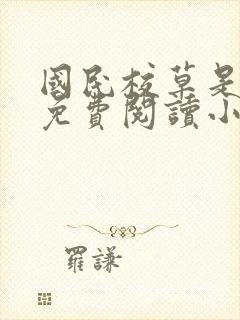 國民校草是
免費閱讀小
羅謙